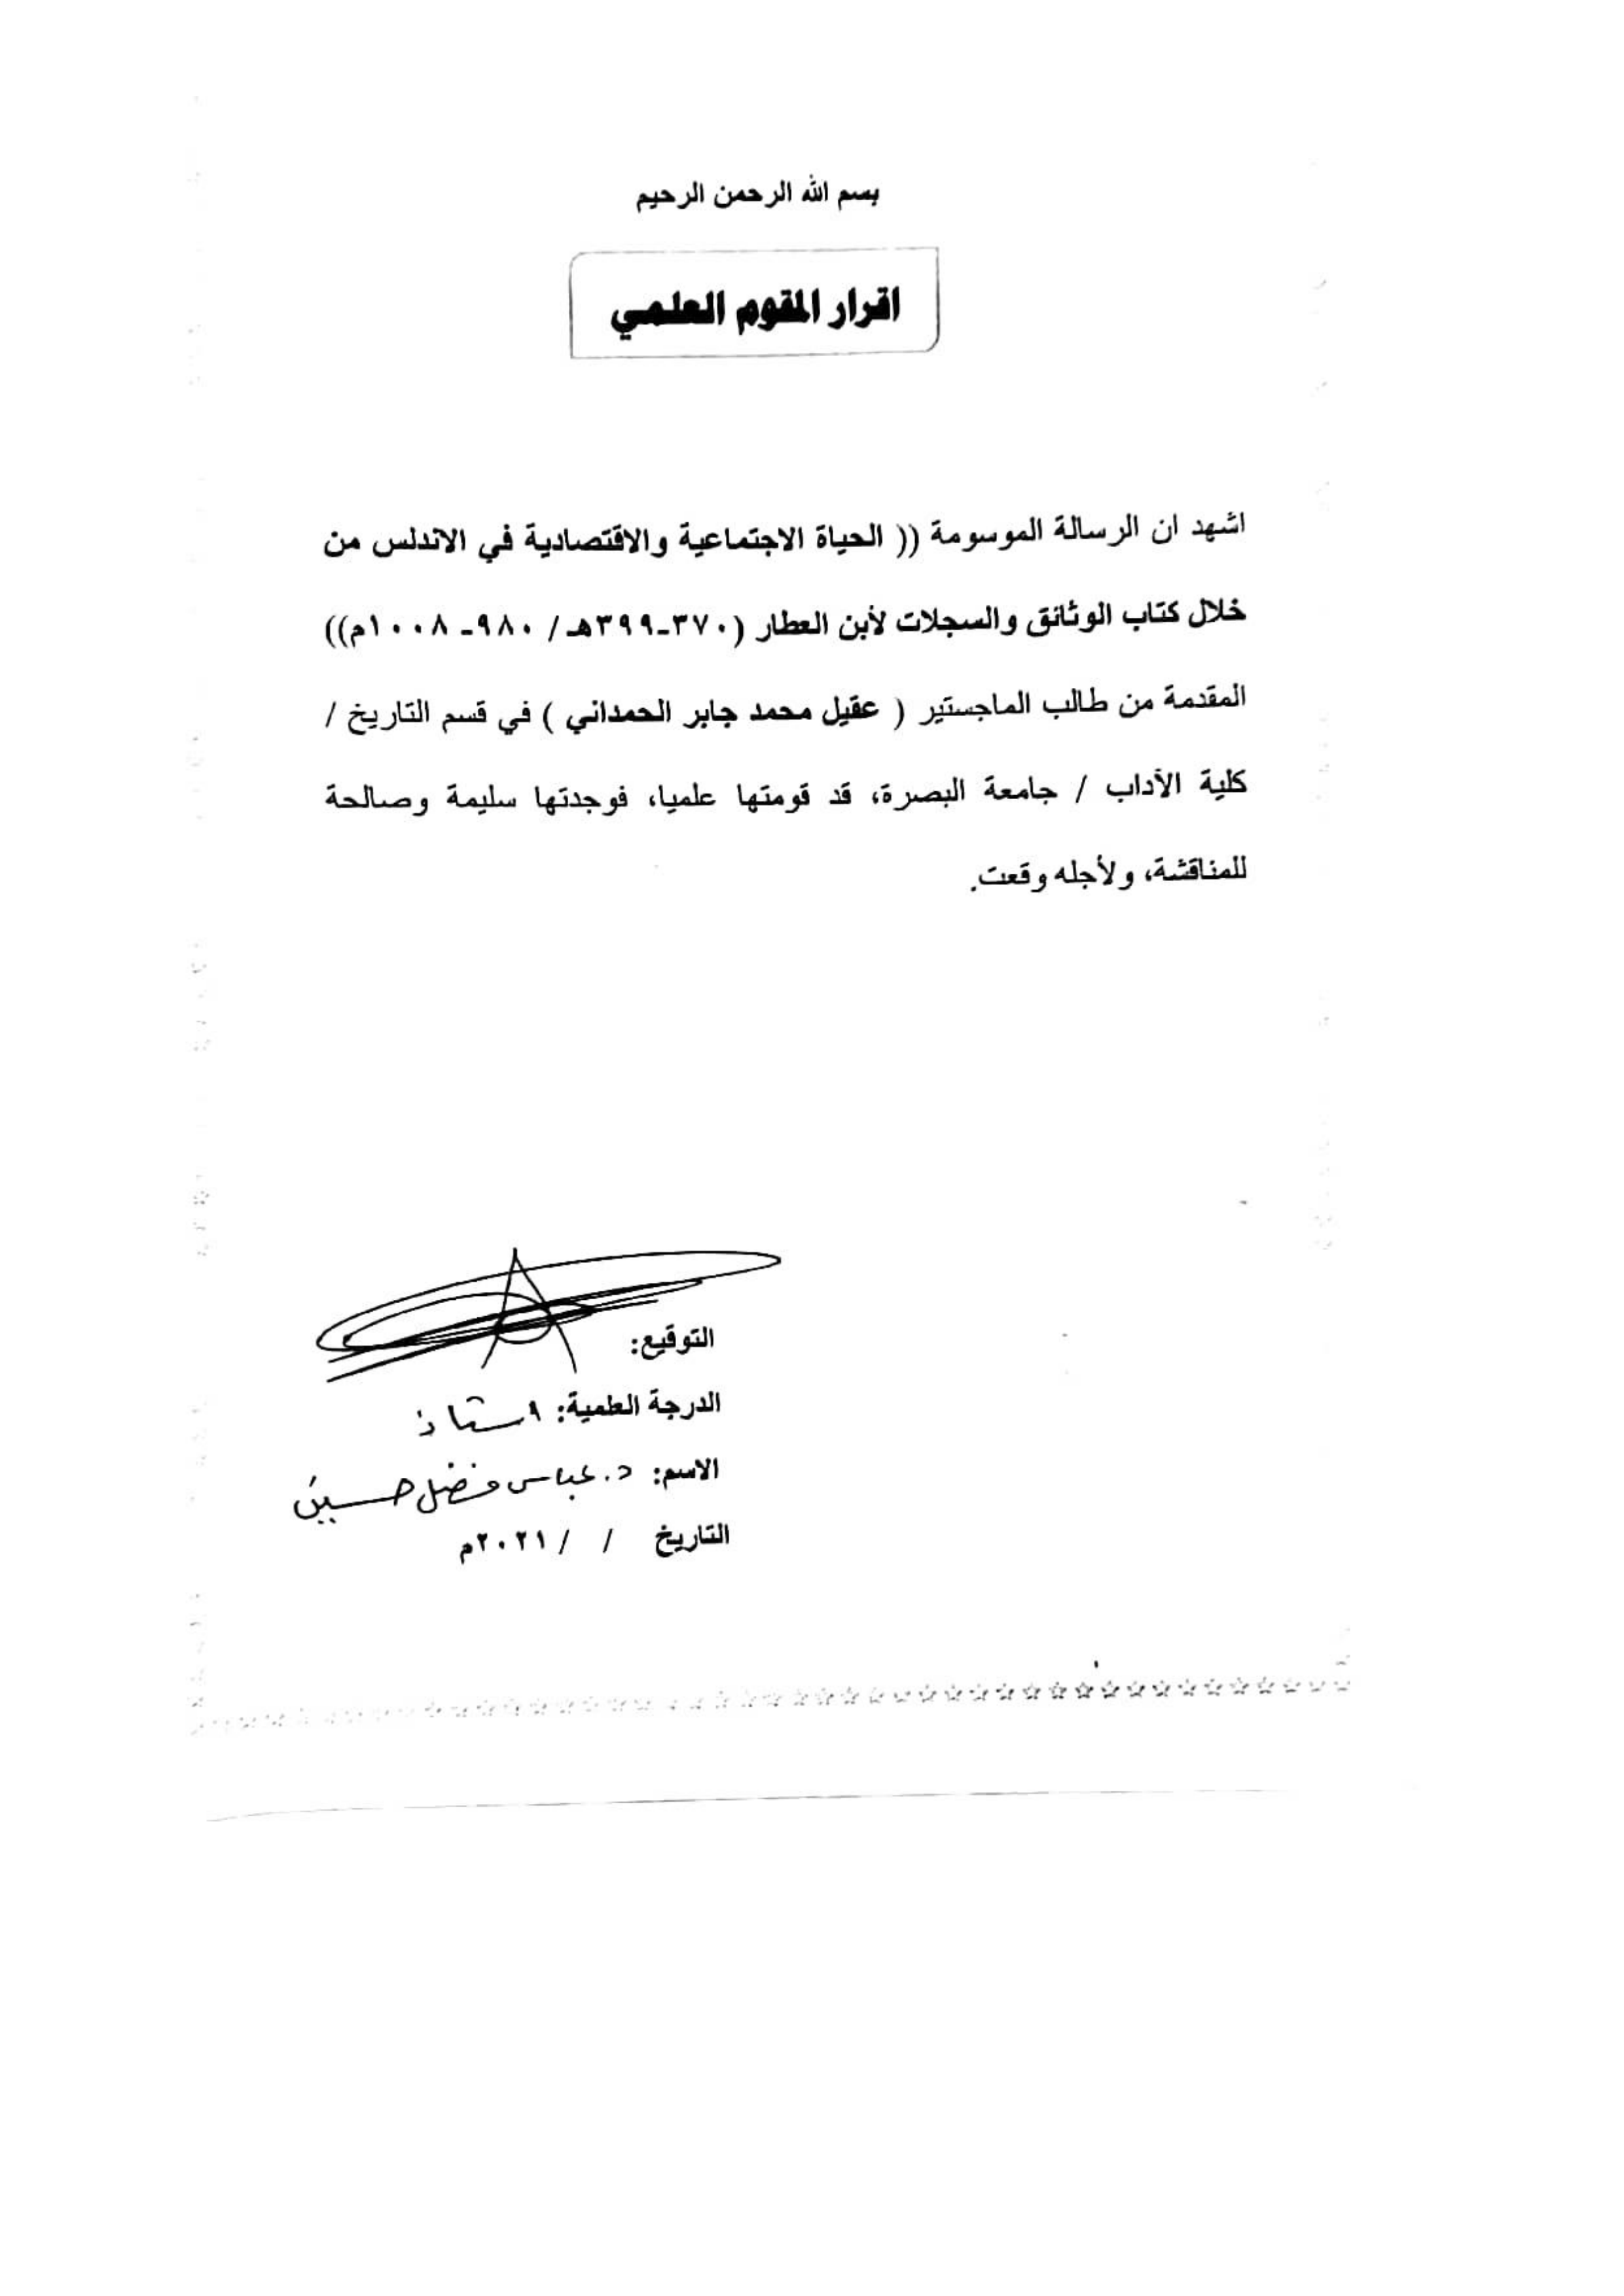 بسم الله الرحمن الرحيم
اقرار المقوم العلمي
اشهد ان الرسالة الموسومة (( الحياة الاجتماعية والاقتصادية في الاندلس من
خلال كتاب الوثائق والسجلات لأبن العطار (٣٧٠-٣٩٩هـ / ٩٨٠- ١٠٠٨م))
المقدمة من طالب الماجستير ( عقيل محمد جابر الحمداني ) في قسم التاريخ /
كلية الأداب / جامعة البصرة، قد قومتها علميا، فوجدتها سليمة وصالحة
للمناقشة، ولأجله وقعت.
التوقيع:
الدرجة العلمية: استاذ
الاسم: د. عباس فضل حسين
التاريخ / / ٢٠٢١م